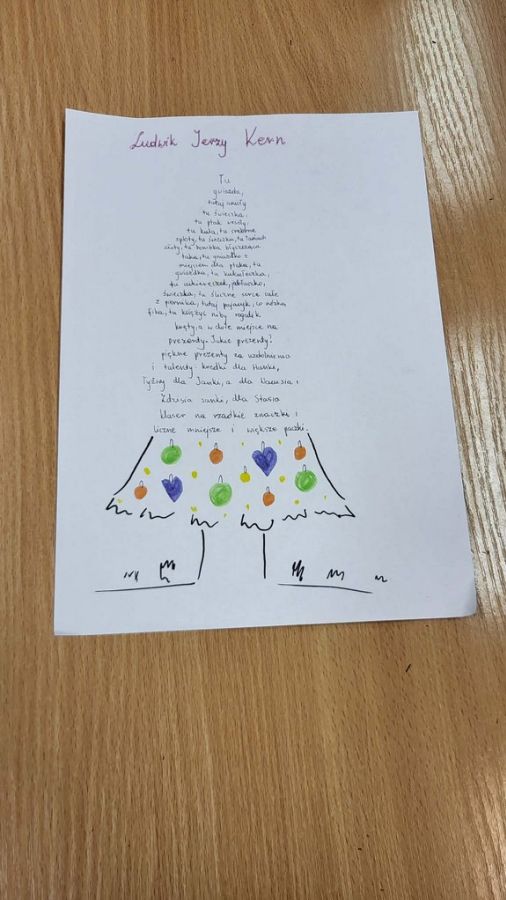 Ludwik Jerzy Kern
Tu
gwiazda,
tutaj anioły
tu świeczka.
tu ptak wesoły.
tu kula, tu srebrne
sploty, tu świeczka, tu łańcuch
złoty, tu bombka błyszcząca
taka, tu gniazdko z
miejscem dla ptaka, tu
gwiazdka, tu kukułeczka,
tu cukiereczek, jabłuszko,
świeczka, tu śliczne serce całe
z piernika, tutaj pajacyk, co nóżką
fika, tu księżyc niby rogalik
kręty, a w dole miejsce na
prezenty. Jakie prezenty?
piękne prezenty za uzdolnienia
i talenty: kredki dla Hanki,
łyżwy dla Janki, a dla Wacusia i
Zdzisia sanki, dla Stasia
klaser na rzadkie znaczki i
liczne mniejsze i większe paczki.